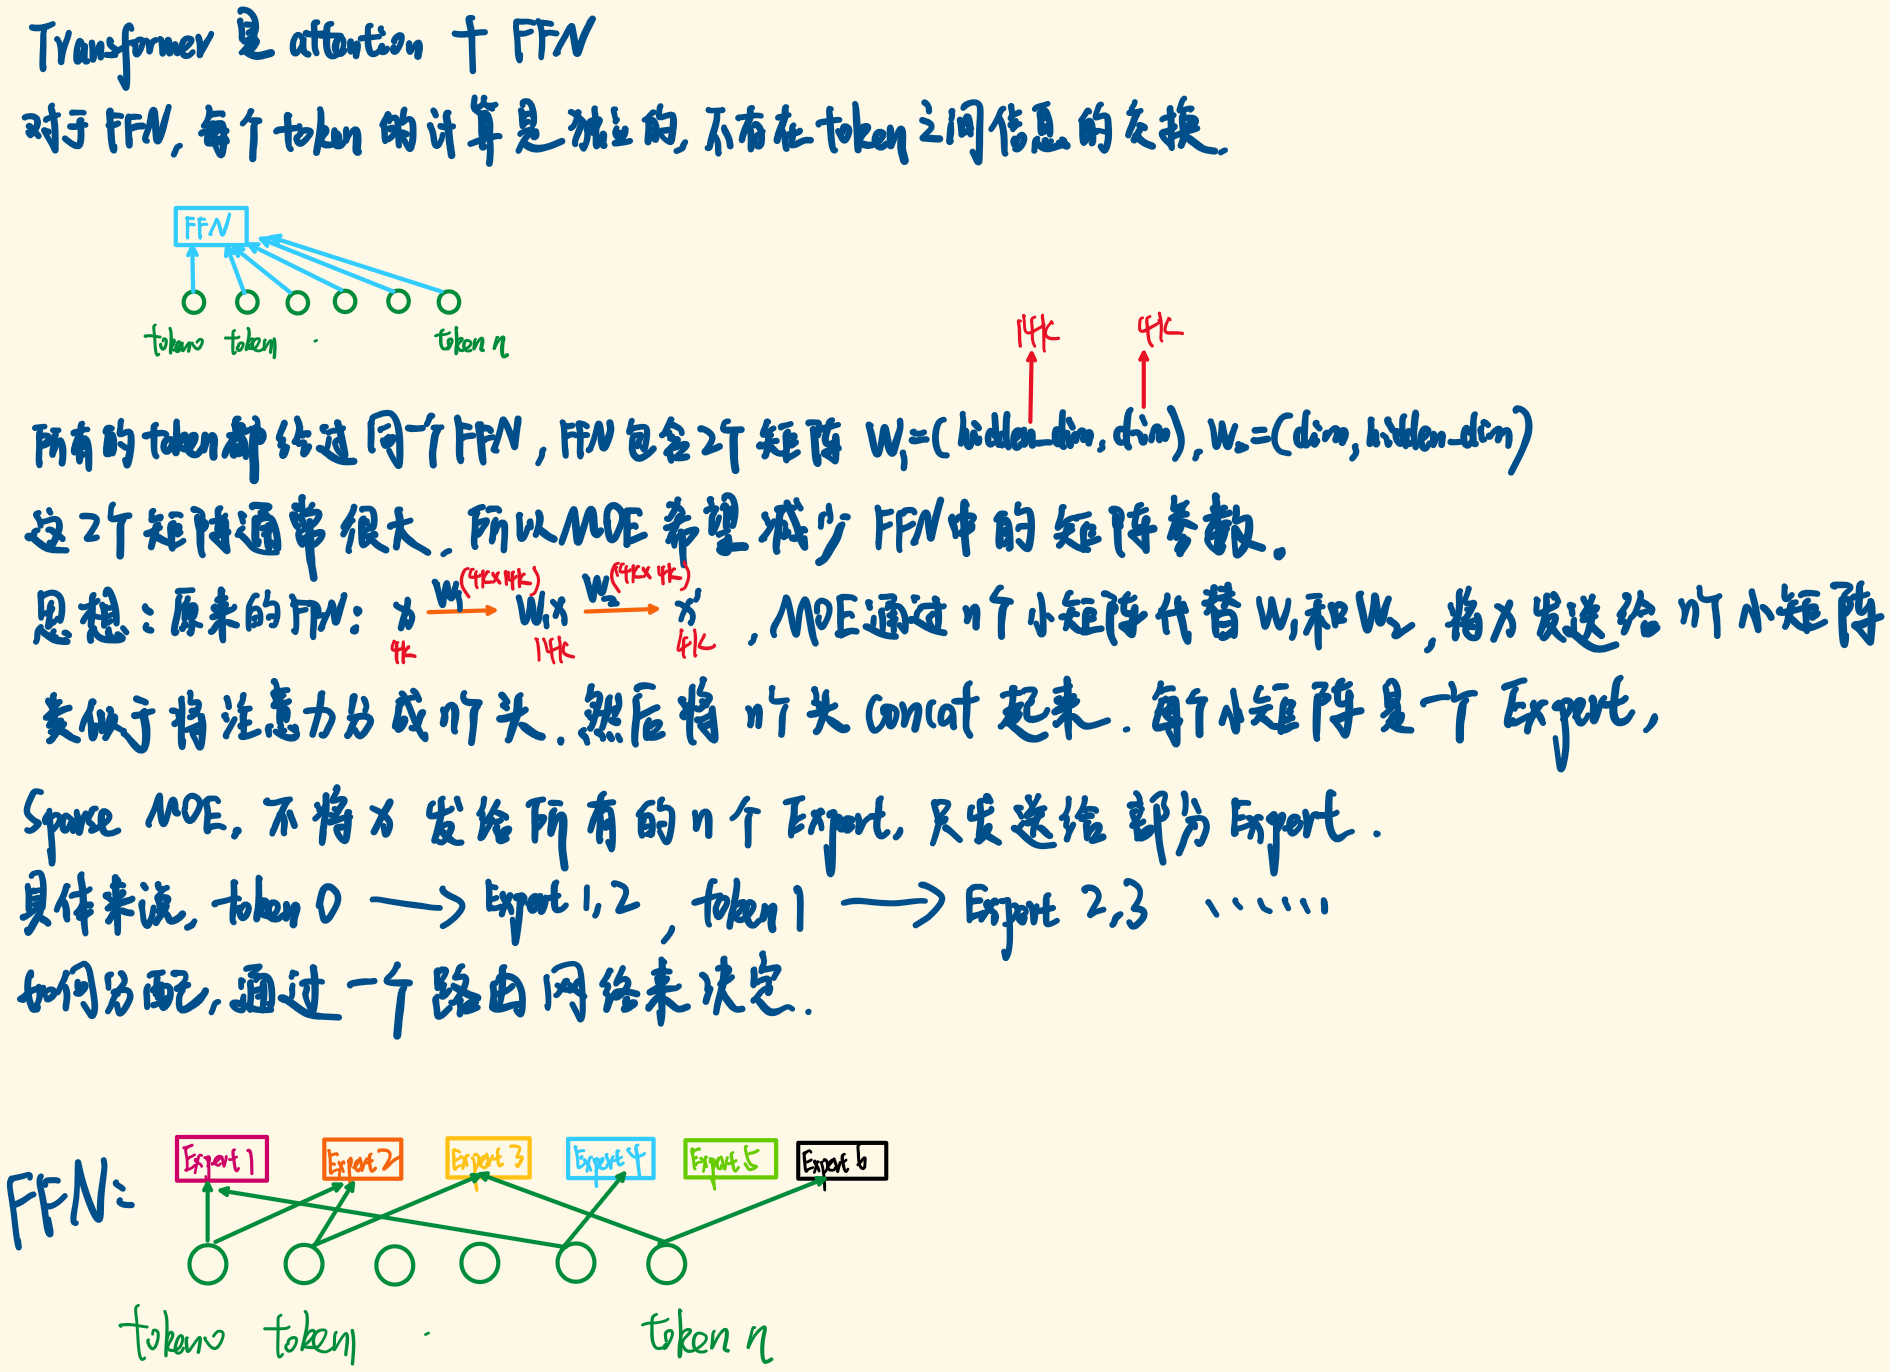 Transformer 是 attantion + FFN
对于 FFN, 每个 token 的计算是独立的, 不存在 token 之间信息的交换.
FFN
token0 token1 · token n
14k 4k
所有的 token 都经过同一个 FFN, FFN 包含2个矩阵 W₁=(hidden_dim, dim), W₂=(dim, hidden_dim)
这2个矩阵通常很大. 所以MOE希望减少 FFN中的矩阵参数.
(4k×14k) (14k×4k)
思想: 原来的FFN: x W₁ W₁x W₂ x', MOE通过n个小矩阵代替W₁和W₂, 将x发送给n个小矩阵
4k 14k 4k
类似于将注意力分成n个头. 然后将n个头 concat 起来. 每个小矩阵是一个 Expert,
Sparse MOE, 不将x发给所有的n个 Expert, 只发送给部分 Expert.
具体来说, token 0 → Expert 1,2, token 1 → Expert 2,3 ······
如何分配, 通过一个路由网络来决定.
Expert 1 Expert 2 Expert 3 Expert 4 Expert 5 Expert 6
FFN:
token0 token1 · token n